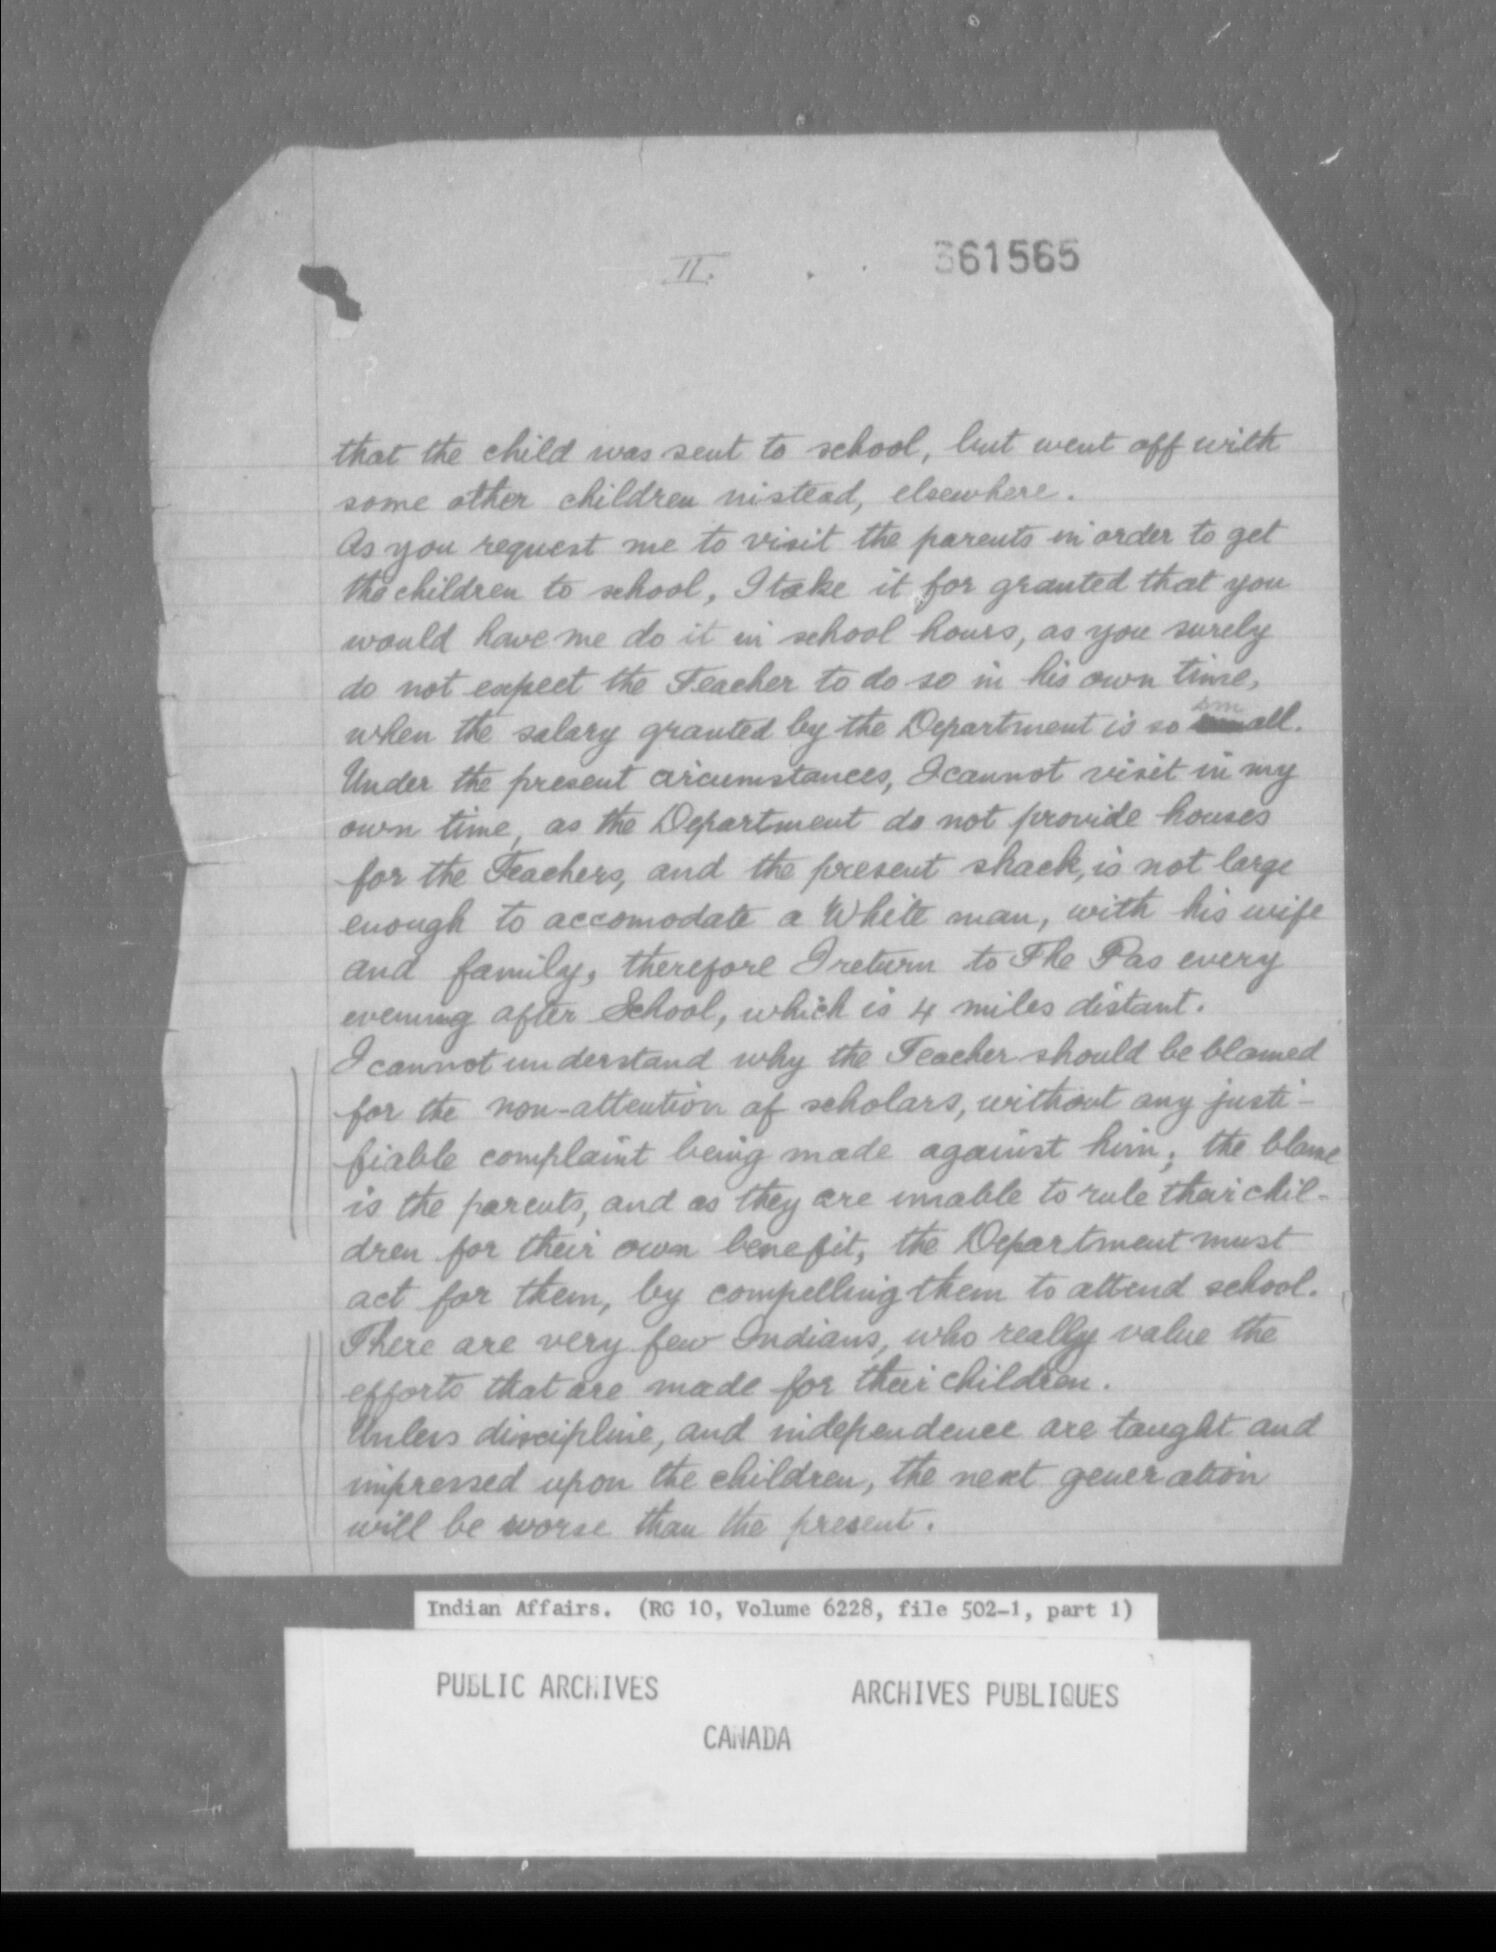 II.
361565
that the child was sent to school, but went off with
some other children instead, elsewhere.
As you request me to visit the parents in order to get
the children to school, I take it for granted that you
would have me do it in school hours, as you surely
do not expect the Teacher to do so in his own time,
when the salary granted by the Department is so small.
Under the present circumstances, I cannot visit in my
own time, as the Department do not provide houses
for the Teachers, and the present shack, is not large
enough to accomodate a White man, with his wife
and family, therefore I return to The Pas every
evening after School, which is 4 miles distant.
I cannot understand why the Teacher should be blamed
for the non-attention of scholars, without any justi-
fiable complaint being made against him; the blame
is the parents, and as they are unable to rule their chil-
dren for their own benefit, the Department must
act for them, by compelling them to attend school.
There are very few Indians, who really value the
efforts that are made for their children.
Unless discipline, and independence are taught and
impressed upon the children, the next generation
will be worse than the present.
Indian Affairs. (RG 10, Volume 6228, file 502-1, part 1)
PUBLIC ARCHIVES ARCHIVES PUBLIQUES
CANADA